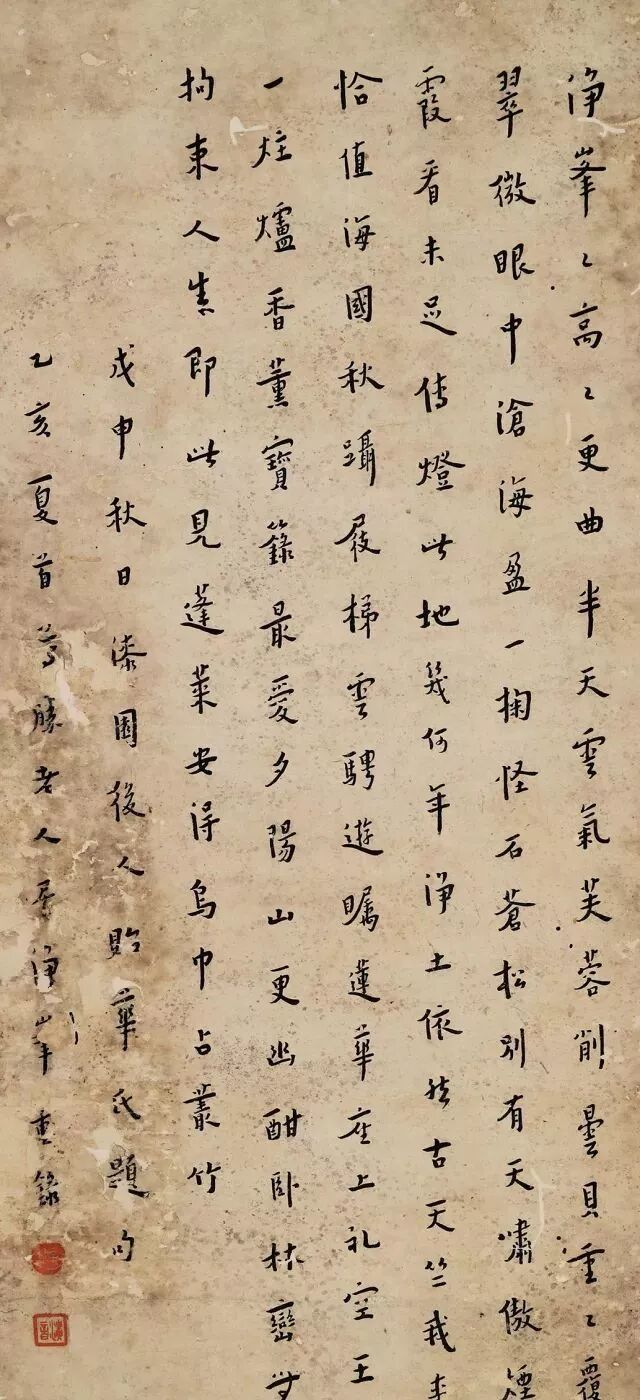 淨峯〻高〻更曲半天雲氣芙蓉削曇貝重〻覆
翠微眼中滄海盈一掬怪石蒼松別有天嘯傲煙
霞看未足傳燈此地幾何年淨土依然古天竺我來
恰值海國秋躡屐梯雲騁遊矚蓮華座上礼空王
一炷爐香薰寶籙最愛夕陽山更幽酣臥林巒
拘束人生即此見蓬萊安得烏巾占叢竹
戊申秋日漆園後人貽華氏題句
乙亥夏首尊勝老人居淨峯重錄